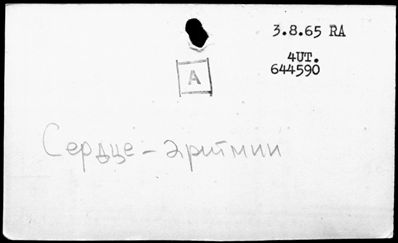 3.8.65 RA
4UT.
644590
A
Сердце - аритмии